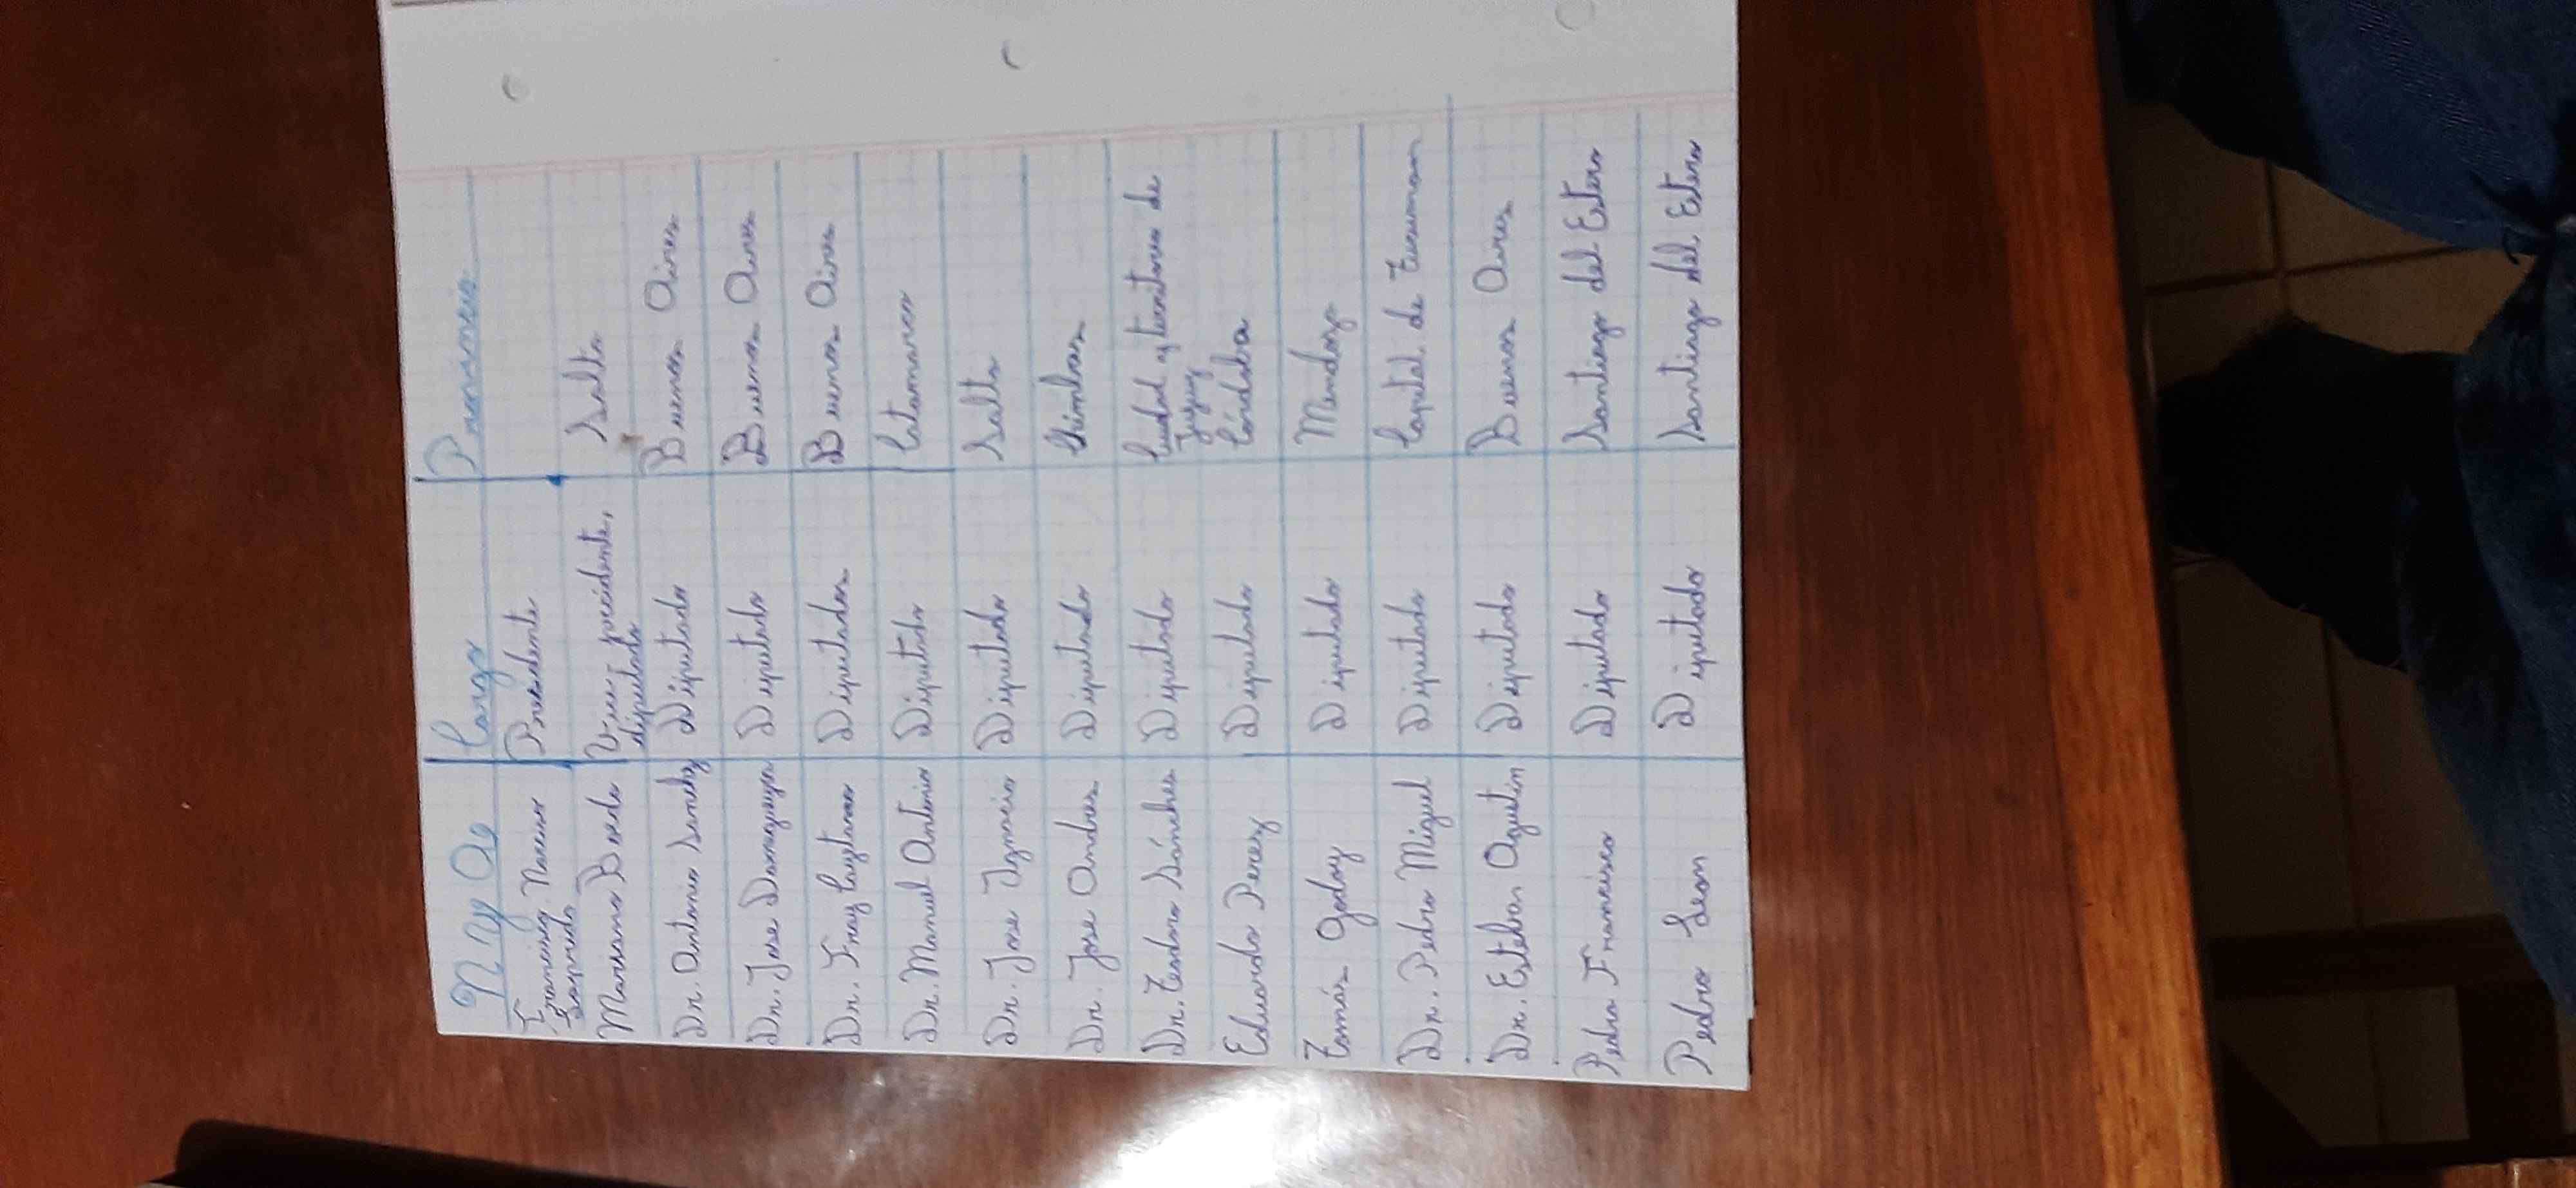 N y A Cargo Provincia
Francisco Narciso Presidente
Laprida
Mariano Boedo Vice-presidente, Salta
diputado
Dr. Antonio Saenz Diputado Buenos Aires
Dr. Jose Darragueyra Diputado Buenos Aires
Dr. Fray Cayetano Diputados Buenos Aires
Dr. Manuel Antonio Diputado Catamarca
Dr. Jose Ignacio Diputado Salta
Dr. Jose Andres Diputado Chimbas
Dr. Teodoro Sánchez Diputado Ciudad y territorio de
Jujuy
Eduardo Perez Diputado Córdoba
Tomás Godoy Diputado Mendoza
Dr. Pedro Miguel Diputado Capital de Tucuman
Dr. Esteban Agustin Diputado Buenos Aires
Pedro Francisco Diputado Santiago del Estero
Pedro Leon Diputado Santiago del Estero